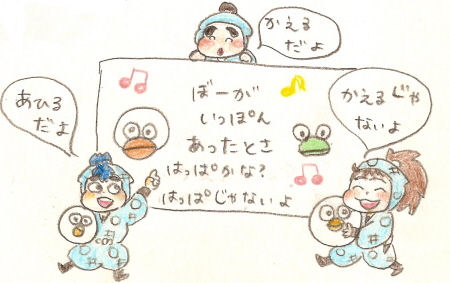 かえる
だよ
あひる
だよ
ぼーが
いっぽん
あったとさ
はっぱかな?
はっぱじゃないよ
かえるじゃ
ないよ